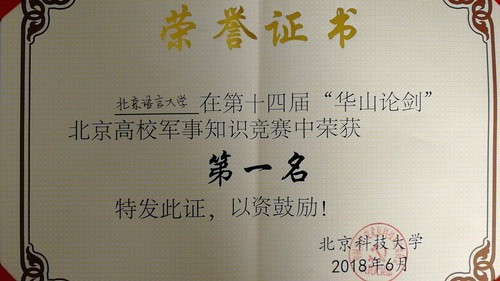 荣誉证书
北京语言大学 在第十四届“华山论剑”
北京高校军事知识竞赛中荣获
第一名
特发此证，以资鼓励！
北京科技大学
2018年6月